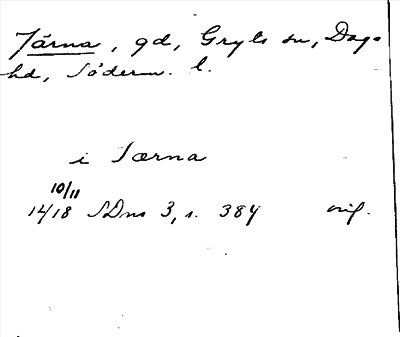 Järna, gd, Gryts sn, Daga
hd, Söderm. l.
i Tærna
10/11
1418 SDns 3, s. 384 orig.